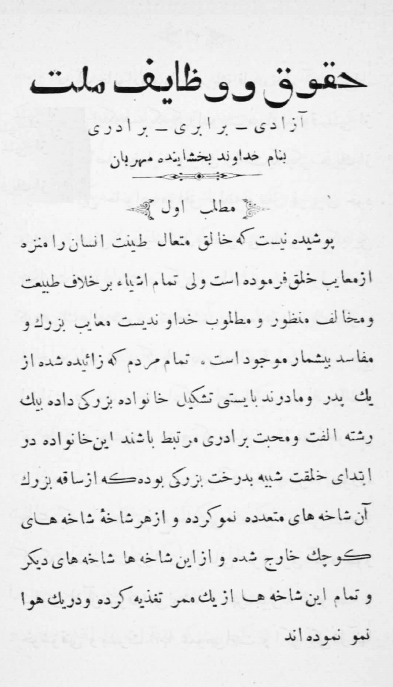 حقوق و وظایف ملت
آزادی ــ برابری ــ برادری
بنام خداوند بخشاینده مهربان
مطلب اول
پوشیده نیست که خالق متعال طینت انسان را منزه
از معایب خلق فرموده است ولی تمام اشیاء بر خلاف طبیعت
و مخالف منظور و مطلوب خداوندیست معایب بزرك و
مفاسد بیشمار موجود است . تمام مردم که زائیده شده از
یك پدر و مادرند بایستی تشکیل خانواده بزرکی داده بیك
رشته الفت و محبت برادری مرتبط باشند این خانواده در
ابتدای خلقت شبیه بدرخت بزرکی بوده که از ساقه بزرك
آن شاخه های متعدده نمو کرده و از هر شاخهٔ شاخه های
کوچك خارج شده و از این شاخه ها شاخه های دیکر
و تمام این شاخه ها از یك ممر تغذیه کرده و در یك هوا
نمو نموده اند